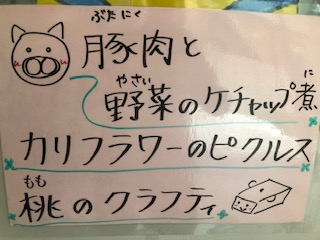 ぶた にく
豚肉と
やさい に
野菜のケチャップ煮
カリフラワーのピクルス
もも
桃のクラフティ